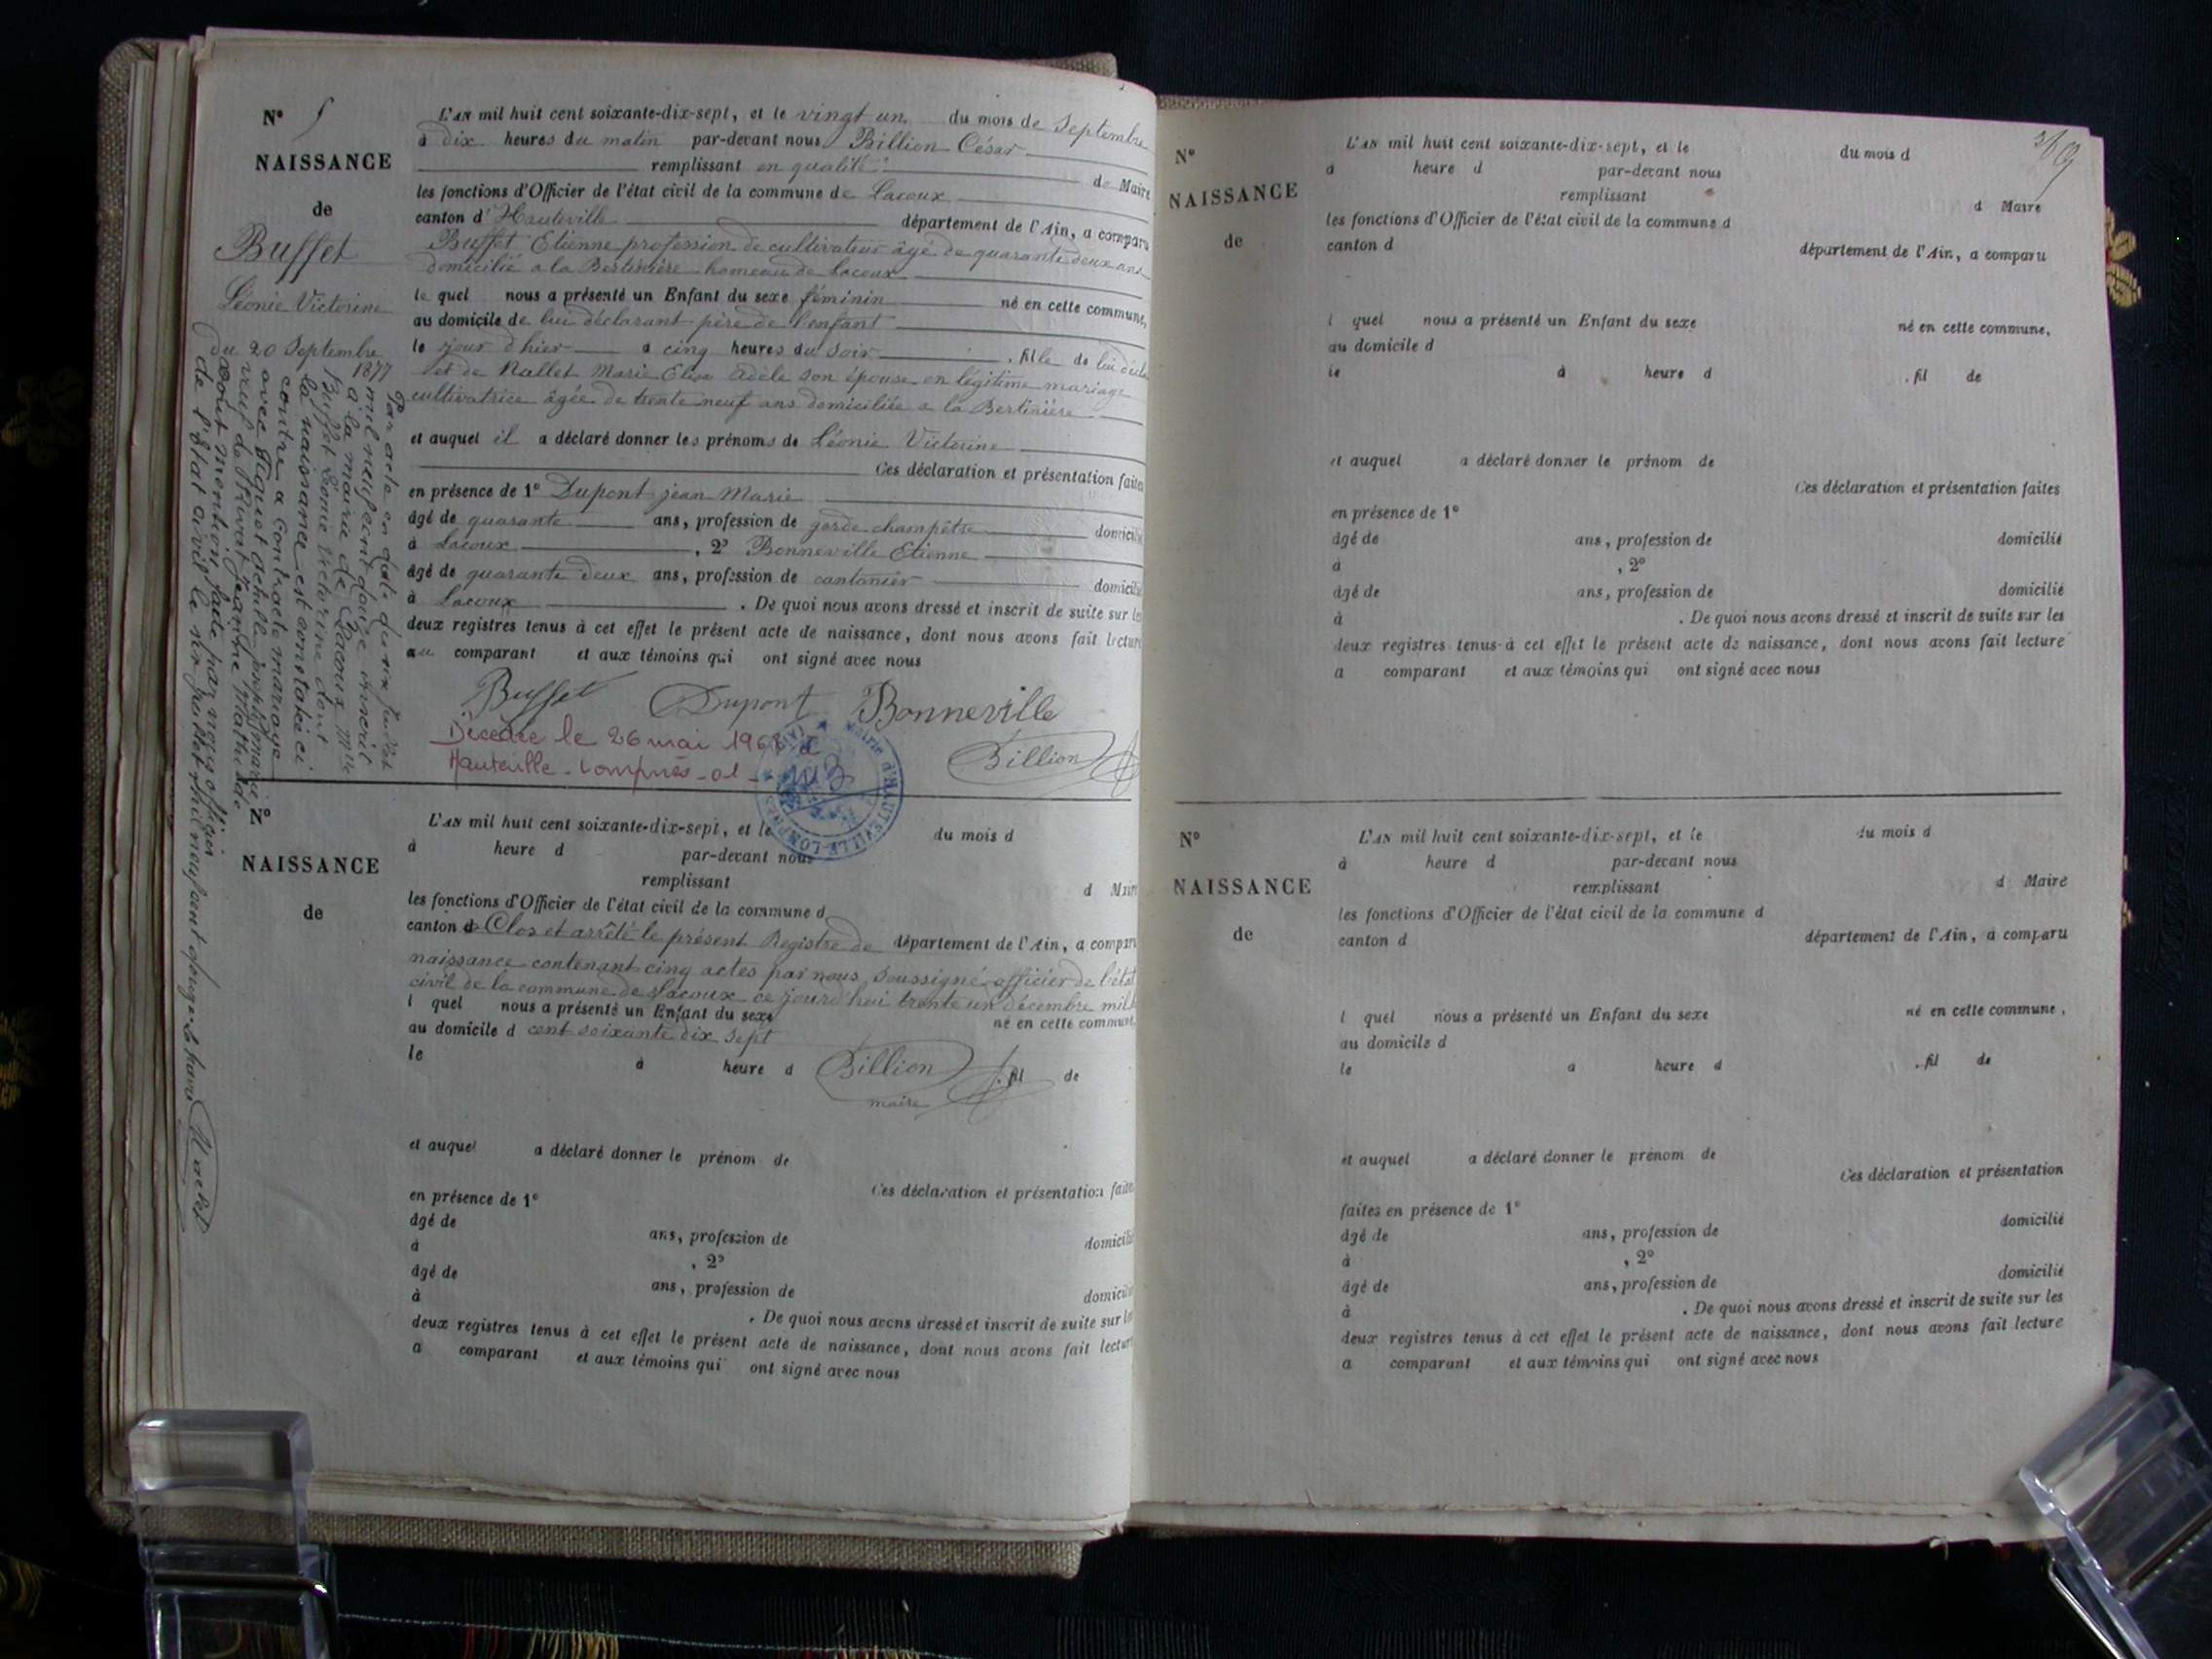 N° 5
NAISSANCE
de
Buffet
Léonie Victorine
Du 20 Septembre
1877
L'AN mil huit cent soixante-dix-sept, et le vingt un du mois de Septembre
à dix heures du matin par-devant nous Billion César
remplissant en qualité de Maire
les fonctions d'Officier de l'état civil de la commune de Lacoux
canton d'Hauteville département de l'Ain, a comparu
Buffet Etienne profession de cultivateur âgé de quarante deux ans
domicilié a la Bertinière hameau de Lacoux
le quel nous a présenté un Enfant du sexe féminin né en cette commune,
au domicile de lui déclarant père de l'enfant
le jour d'hier à cinq heures du soir , fille de lui décla
et de Nallet Marie Elisa Adèle son épouse en légitime mariage
cultivatrice âgée de trente neuf ans domiciliée a la Bertinière
et auquel il a déclaré donner les prénoms de Léonie Victorine
Ces déclaration et présentation faites
en présence de 1° Dupont jean Marie
âgé de quarante ans, profession de garde champêtre domicilié
à Lacoux , 2° Bonneville Etienne
âgé de quarante deux ans, profession de cantonier domicilié
à Lacoux . De quoi nous avons dressé et inscrit de suite sur les
deux registres tenus à cet effet le présent acte de naissance, dont nous avons fait lecture
au comparant et aux témoins qui ont signé avec nous
Buffet Dupont Bonneville
Billion
Décédée le 26 mai 196 à
Hauteville-Lompnès-01-
Par acte en date du six
mil neuf cent douze inscrit
à la mairie de Lacoux Mlle
Buffet Léonie Victorine dont
la naissance est constatée ci
contre a contracté mariage
avec
veuf de
Dont mention faite par nous officier
de l'Etat civil le six juillet mil neuf cent douze. Le Maire
N°
NAISSANCE
de
L'AN mil huit cent soixante-dix-sept, et le du mois d
à heure d par-devant nous
remplissant d Maire
les fonctions d'Officier de l'état civil de la commune d
canton d département de l'Ain, a comparu
Clos et arrêté le présent Registre de
naissance contenant cinq actes par nous soussigné officier de l'état
civil de la commune de Lacoux ce jourd'hui trente un décembre mil
l quel nous a présenté un Enfant du sexe né en cette commune,
au domicile d cent soixante dix sept
le à heure d , fil de
Billion
maire
et auquel a déclaré donner le prénom de
Ces déclaration et présentation faites
en présence de 1°
âgé de ans, profession de domicilié
à , 2°
âgé de ans, profession de domicilié
à . De quoi nous avons dressé et inscrit de suite sur les
deux registres tenus à cet effet le présent acte de naissance, dont nous avons fait lecture
a comparant et aux témoins qui ont signé avec nous
N°
NAISSANCE
de
L'AN mil huit cent soixante-dix-sept, et le du mois d
à heure d par-devant nous
remplissant d Maire
les fonctions d'Officier de l'état civil de la commune d
canton d département de l'Ain, a comparu
l quel nous a présenté un Enfant du sexe né en cette commune,
au domicile d
le à heure d , fil de
et auquel a déclaré donner le prénom de
Ces déclaration et présentation faites
en présence de 1°
âgé de ans, profession de domicilié
à , 2°
âgé de ans, profession de domicilié
à . De quoi nous avons dressé et inscrit de suite sur les
deux registres tenus à cet effet le présent acte de naissance, dont nous avons fait lecture
a comparant et aux témoins qui ont signé avec nous
N°
NAISSANCE
de
L'AN mil huit cent soixante-dix-sept, et le du mois d
à heure d par-devant nous
remplissant d Maire
les fonctions d'Officier de l'état civil de la commune d
canton d département de l'Ain, a comparu
l quel nous a présenté un Enfant du sexe né en cette commune,
au domicile d
le à heure d , fil de
et auquel a déclaré donner le prénom de
Ces déclaration et présentation
faites en présence de 1°
âgé de ans, profession de domicilié
à , 2°
âgé de ans, profession de domicilié
à . De quoi nous avons dressé et inscrit de suite sur les
deux registres tenus à cet effet le présent acte de naissance, dont nous avons fait lecture
a comparant et aux témoins qui ont signé avec nous